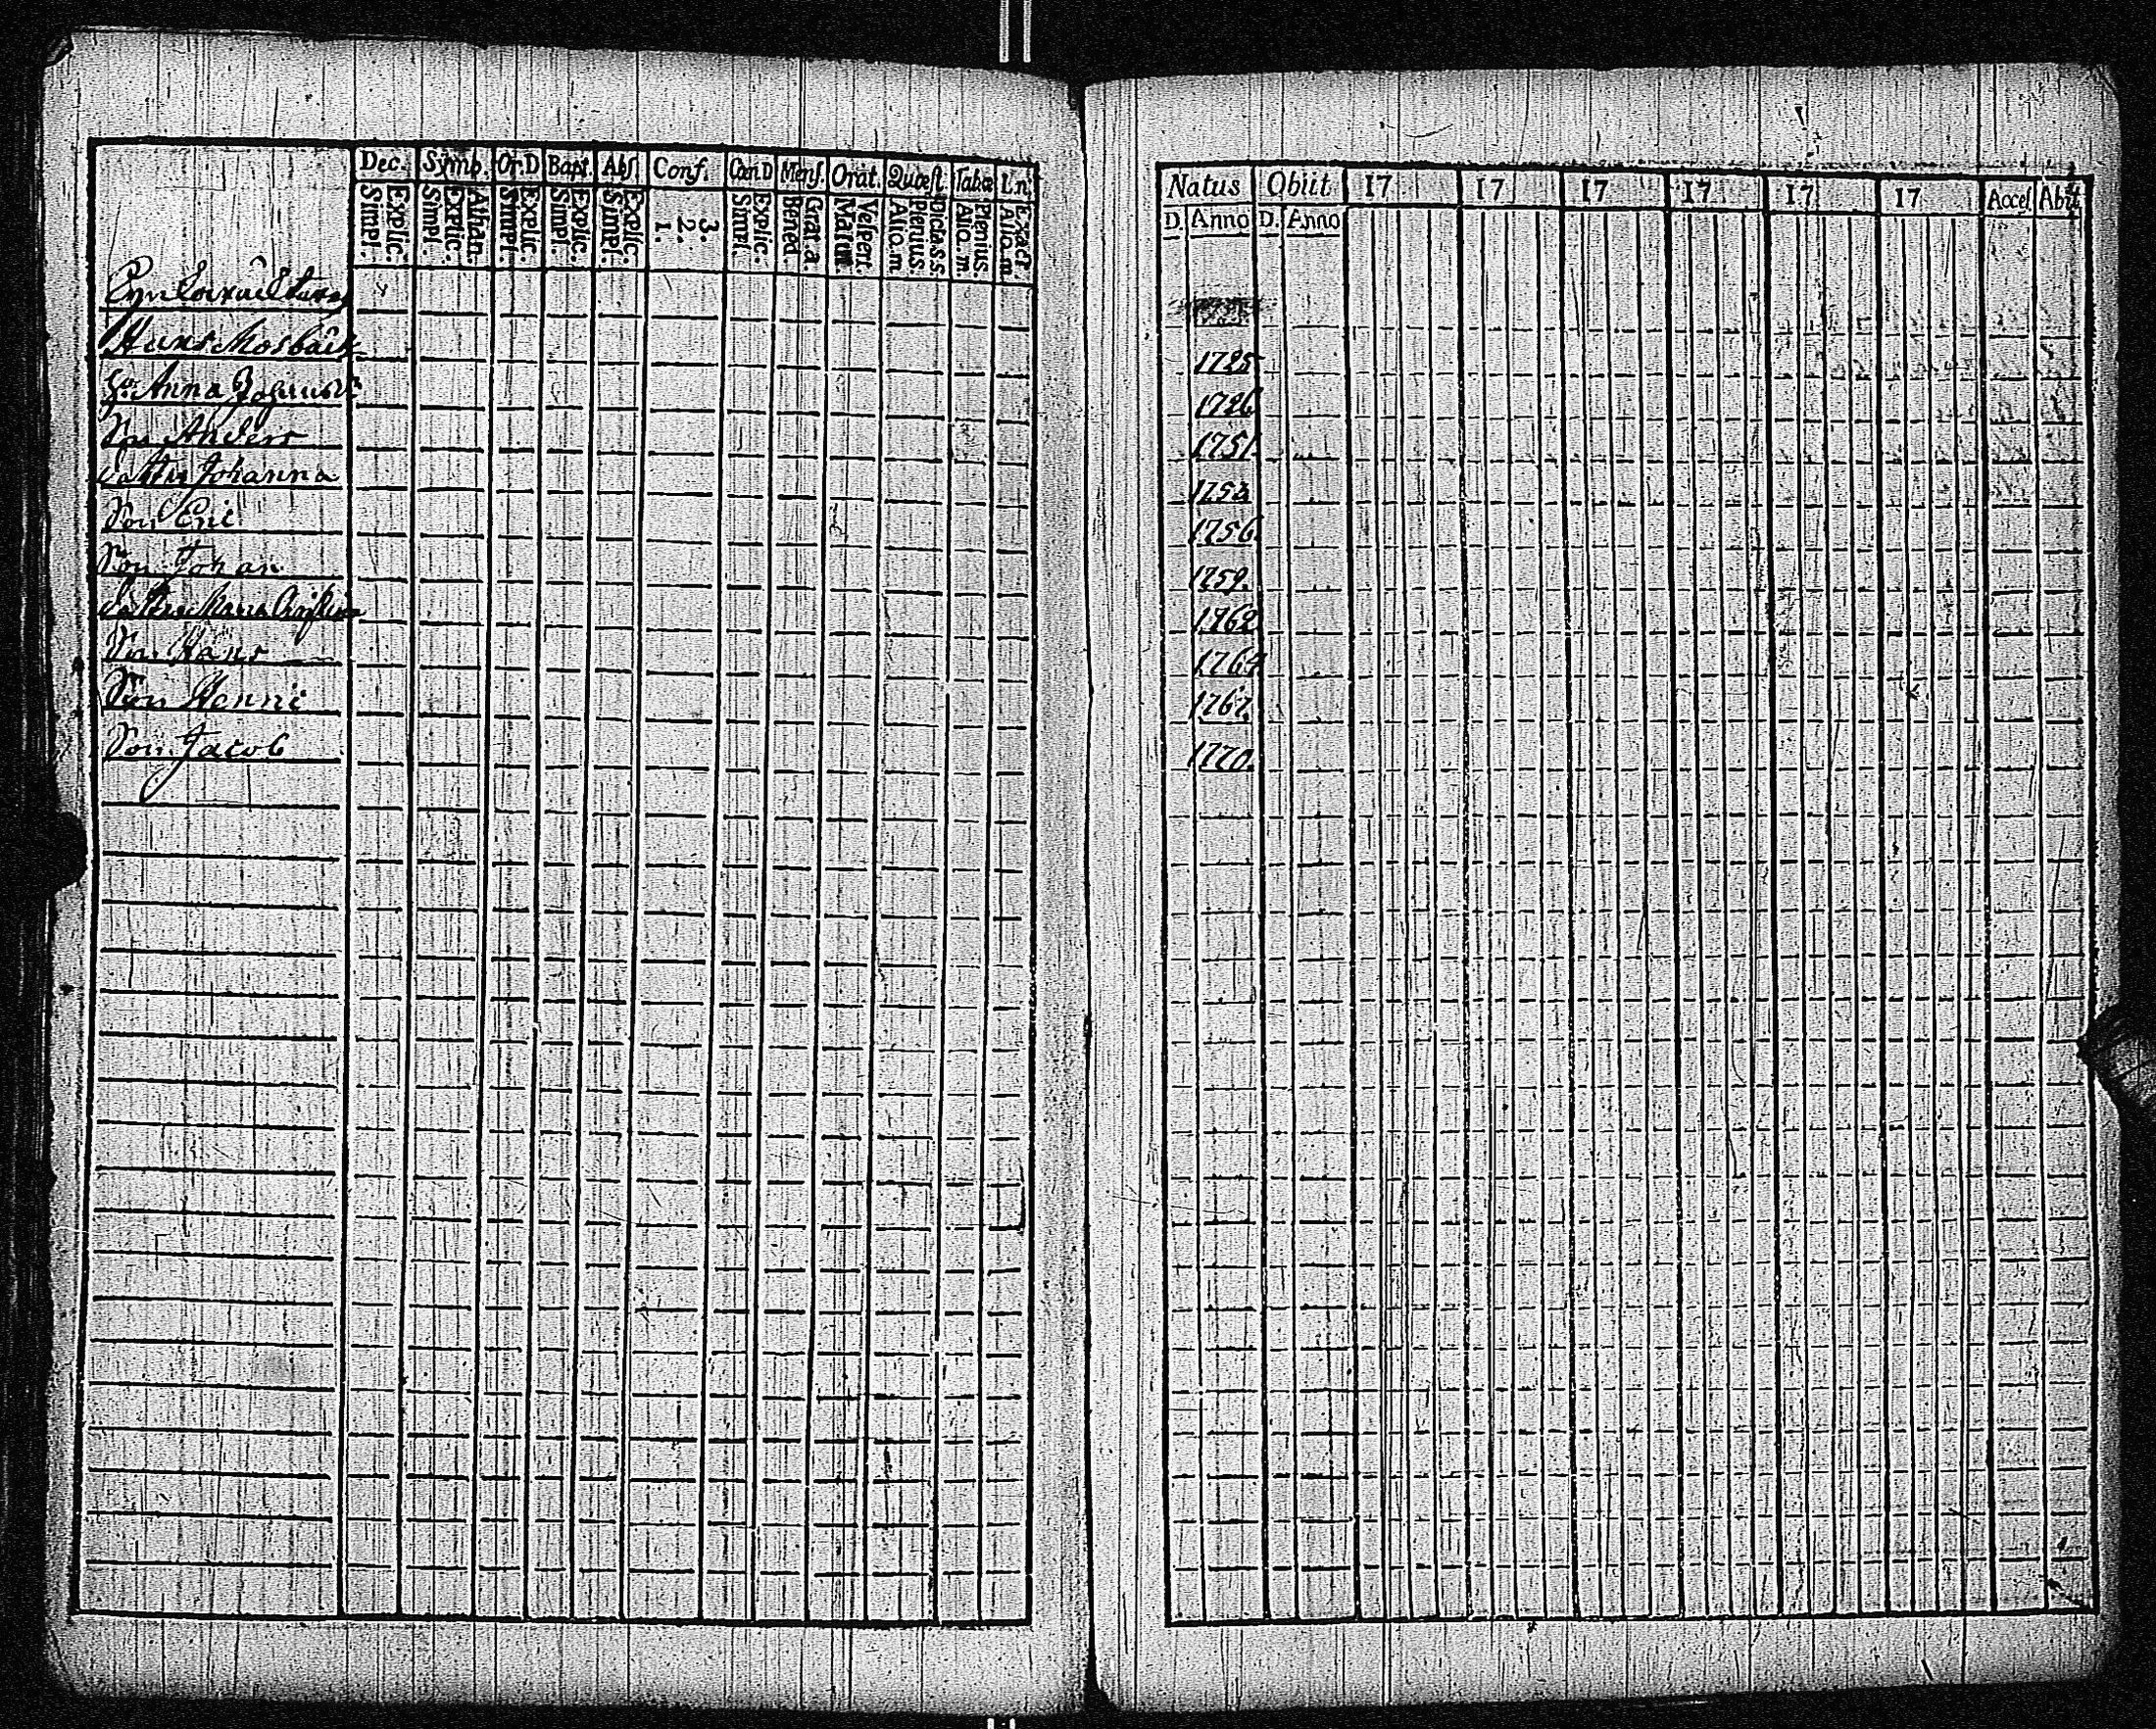 Dec. Symb. Or.D Bapt. Abs. Conf. Cœn.D Mens. Orat. Quæst. Tabœ L.n.
Simpl. Explic. Simpl. Explic. Athan. Simpl. Explic. Simpl. Explic. Simpl. Explic. 1. 2. 3. Simpl. Explic. Bened. Grat.a. Matut. Vespert. Alio.m Plenius. Alio.m. Plenius. A.lio.m. Exact.
Hans Mosbäck
Anna
Son Anders
Johanna
Son Eric
Son Johan
Maria Christina
Son Hans
Son Henric
Son Jacob
Natus Obiit 17 17 17 17 17 17 Accel. Abiit
D. Anno D. Anno
1725
1726
1751.
1753
1756
1759.
1762
1764
1767.
1770.